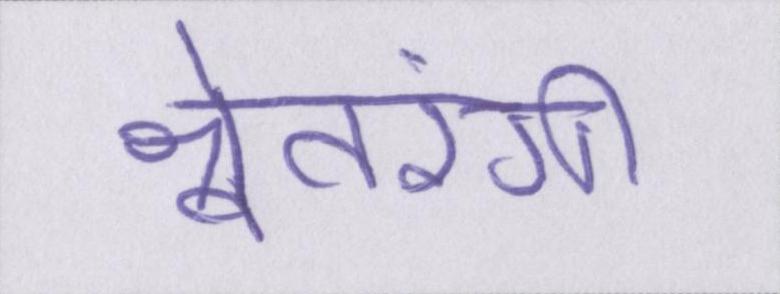 श्वेतरंगी